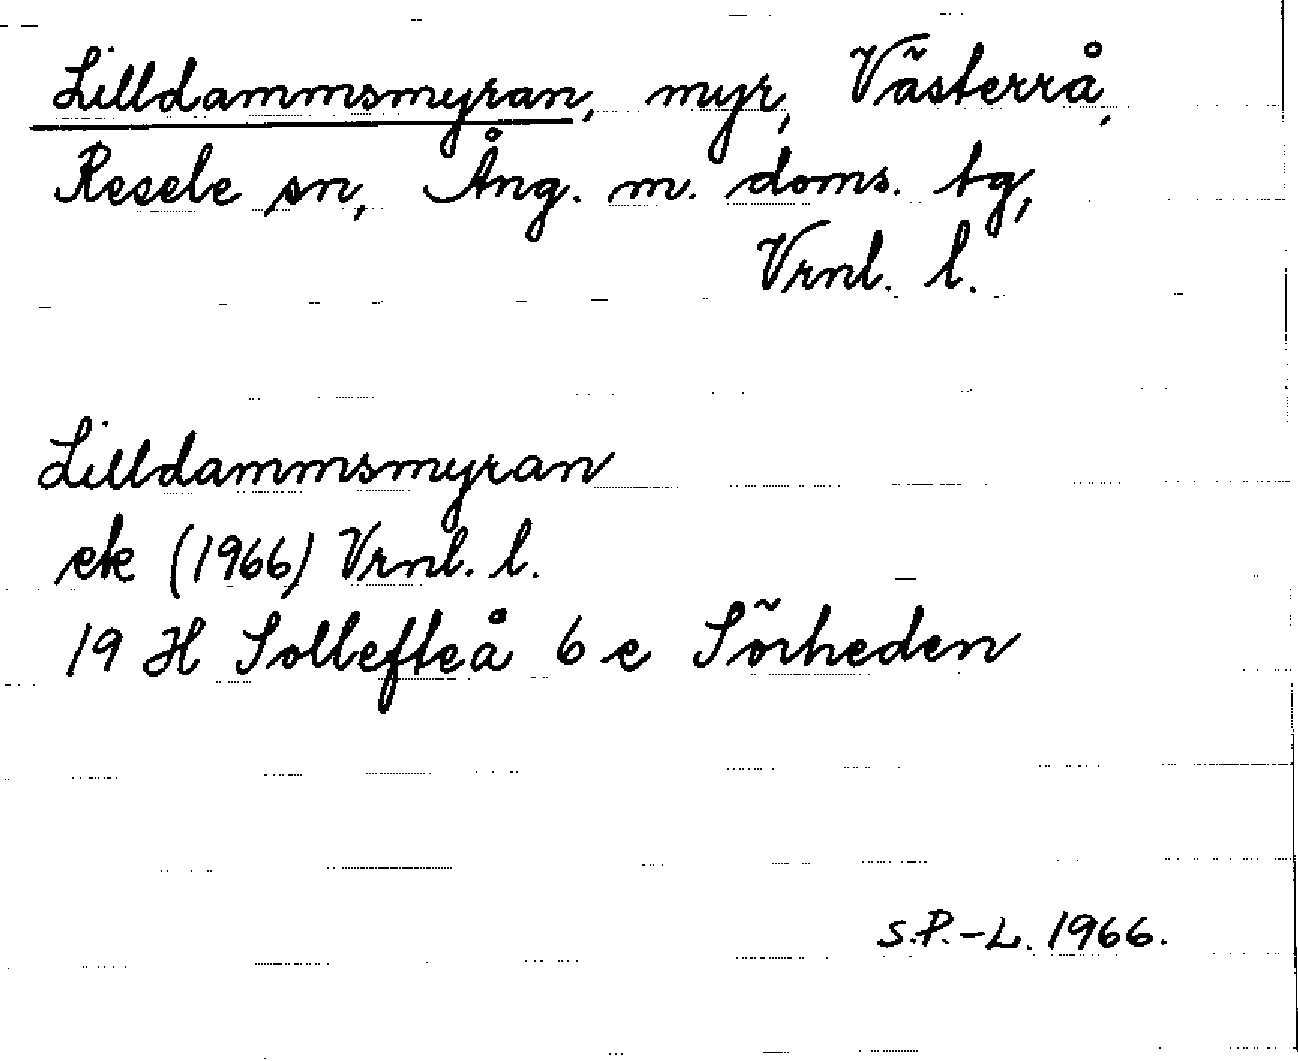 Lilldammsmyran, myr, Västerrå,
Resele sn, Ång. m. doms. tg,
Vrnl. l.
Lilldammsmyran
ek (1966) Vrnl. l.
19 H Sollefteå 6 e Sörheden
S.P.-L. 1966.